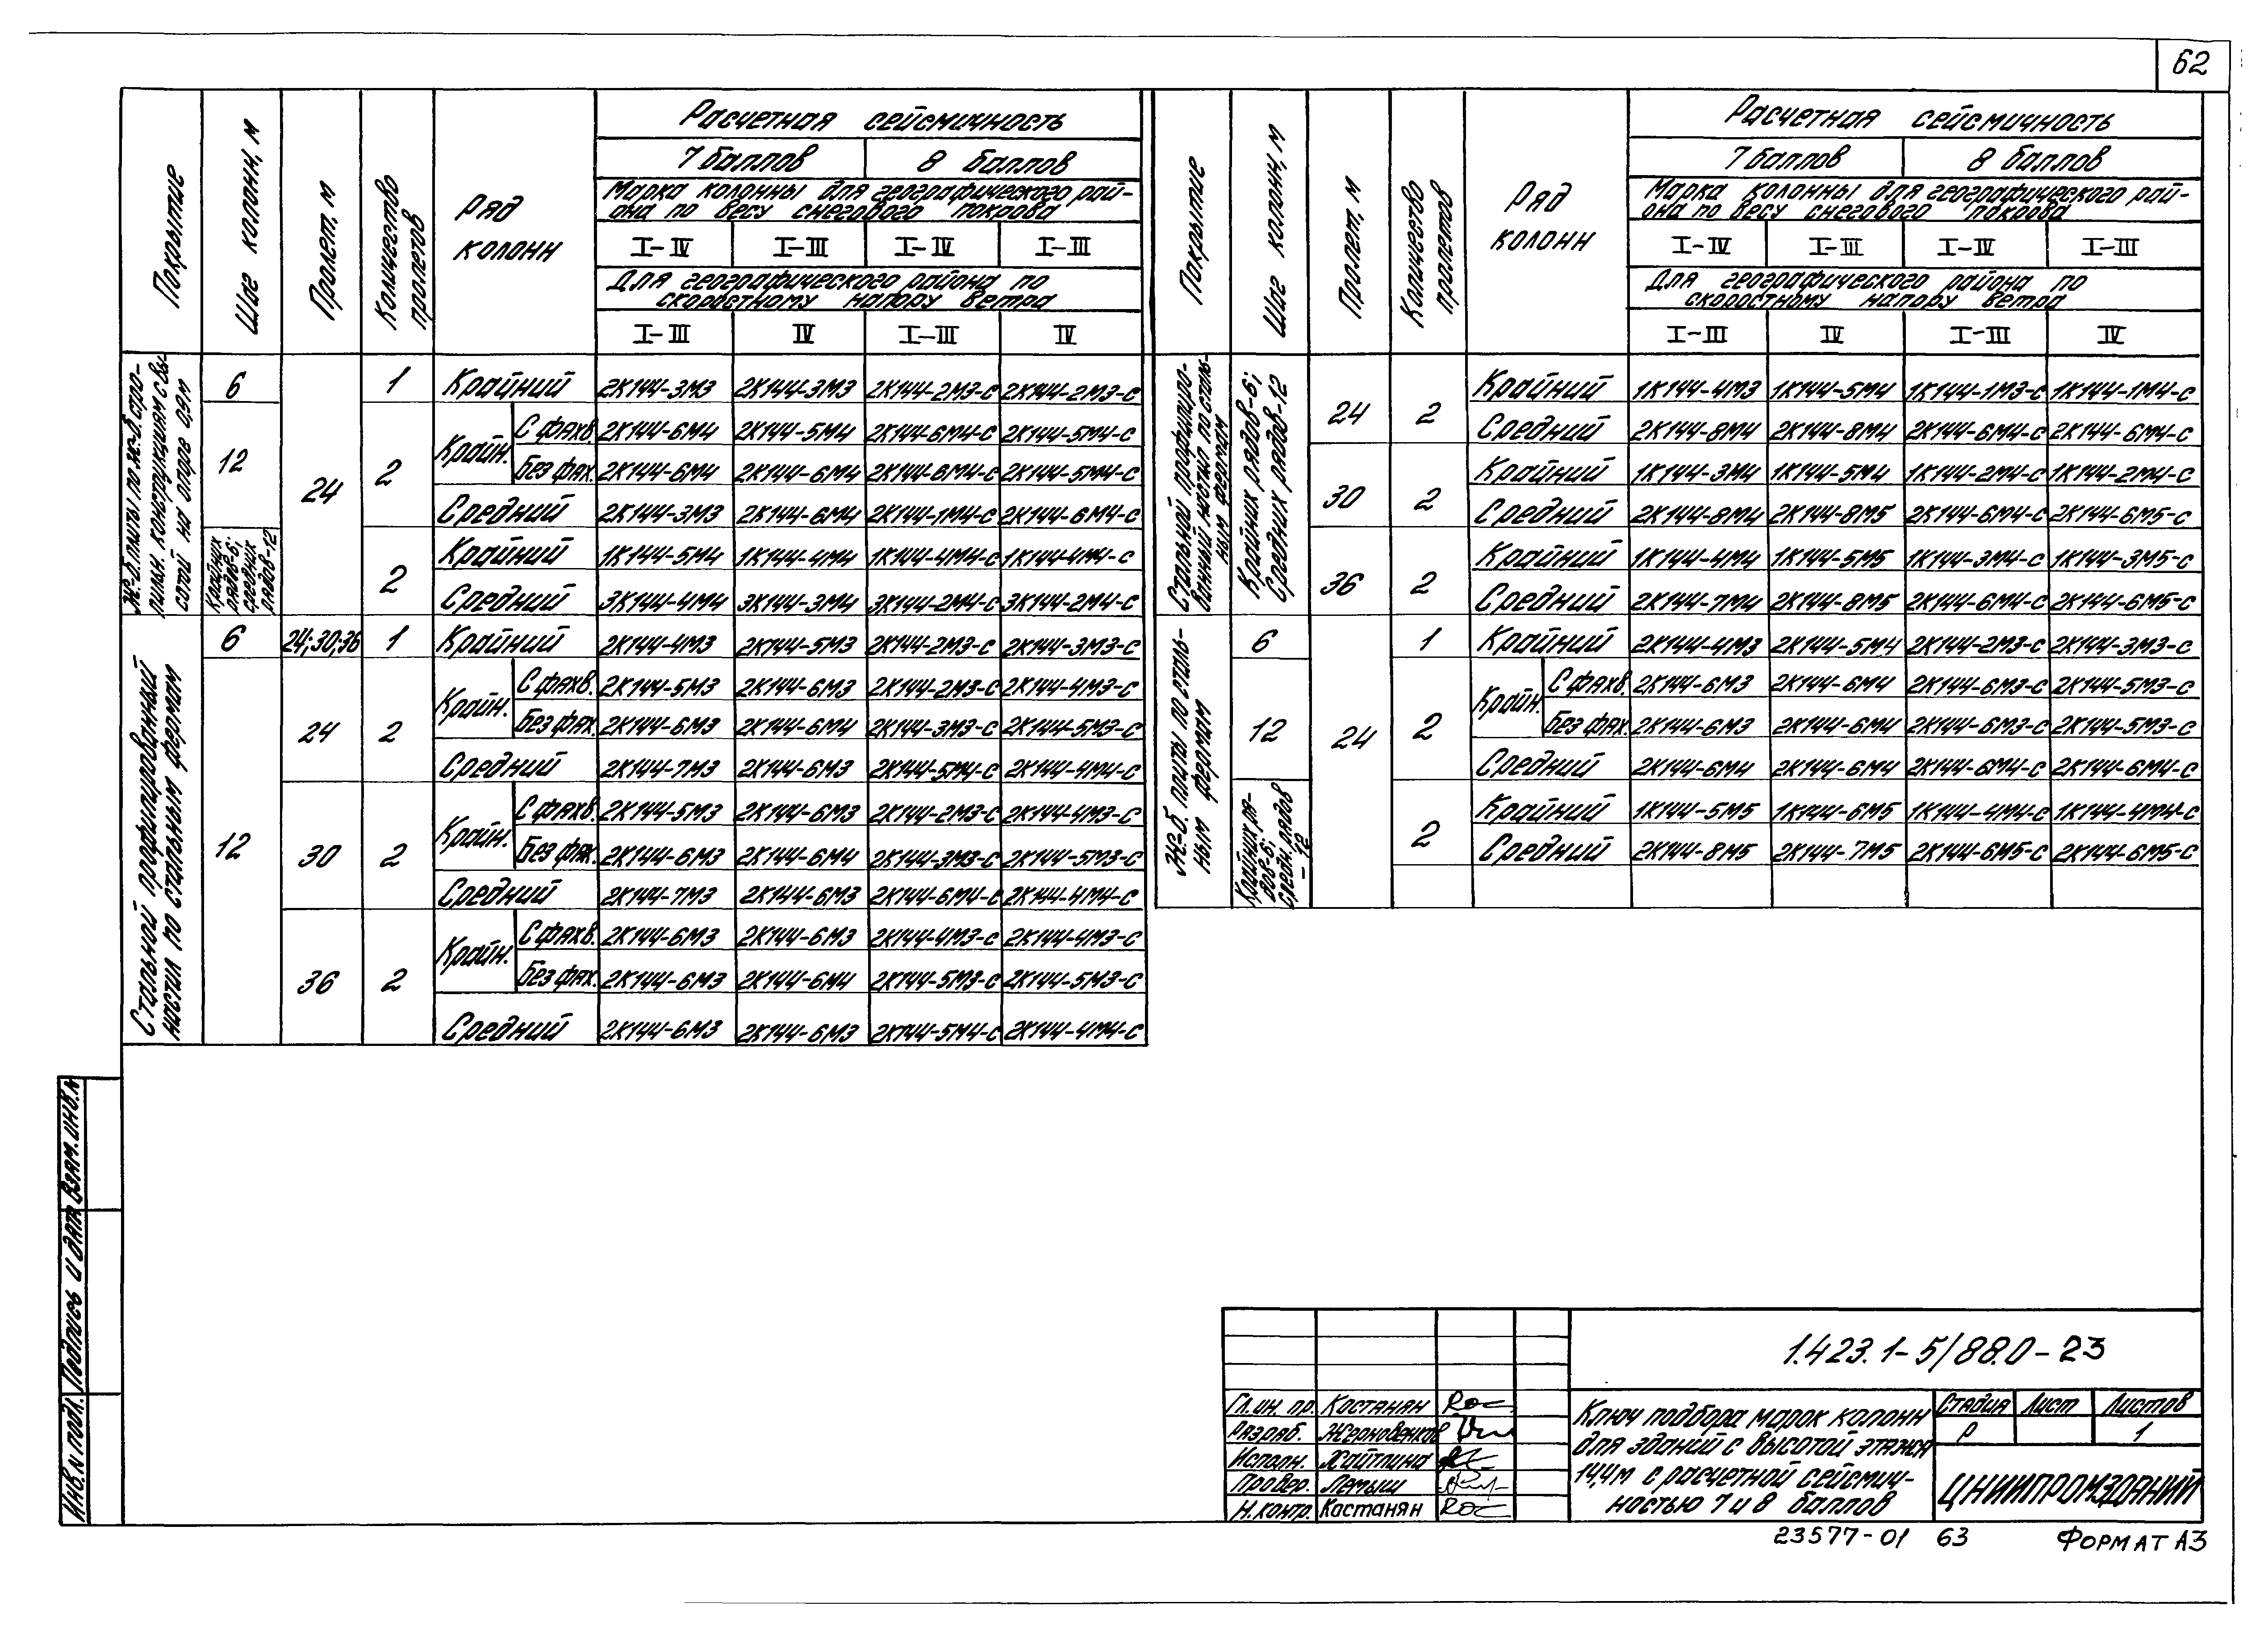 62
Покрытие
Шаг колонн, м
Пролет, м
Количество пролетов
Ряд колонн
Расчетная сейсмичность
7 баллов 8 баллов
Марка колонны для географического рай-
она по весу снегового покрова
I-IV I-III I-IV I-III
Для географического района по
скоростному напору ветра
I-III IV I-III IV
Ж.-б. плиты по ж.-б. стро-
пильн. конструкциям с вы-
сотой на опоре 0,9м
6 24 1 Крайний 2К144-3М3 2К144-3М3 2К144-2М3-С 2К144-2М3-С
12 2 Крайн. С фахв. 2К144-6М4 2К144-5М4 2К144-6М4-С 2К144-5М4-С
Без фах. 2К144-6М4 2К144-6М4 2К144-6М4-С 2К144-5М4-С
Средний 2К144-3М3 2К144-6М4 2К144-1М4-С 2К144-6М4-С
Крайних
рядов-6;
средних
рядов-12
2 Крайний 1К144-5М4 1К144-4М4 1К144-4М4-С 1К144-4М4-С
Средний 3К144-4М4 3К144-3М4 3К144-2М4-С 3К144-2М4-С
Стальной профилированный
настил по стальным фермам
6 24;30;36 1 Крайний 2К144-4М3 2К144-5М3 2К144-2М3-С 2К144-3М3-С
12 24 2 Крайн. С фахв. 2К144-5М3 2К144-6М3 2К144-2М3-С 2К144-4М3-С
Без фах. 2К144-6М3 2К144-6М4 2К144-3М3-С 2К144-5М3-С
Средний 2К144-7М3 2К144-6М3 2К144-5М4-С 2К144-4М4-С
30 2 Крайн. С фахв. 2К144-5М3 2К144-6М3 2К144-2М3-С 2К144-4М3-С
Без фах. 2К144-6М3 2К144-6М4 2К144-3М3-С 2К144-5М3-С
Средний 2К144-7М3 2К144-6М3 2К144-6М4-С 2К144-4М4-С
36 2 Крайн. С фахв. 2К144-6М3 2К144-6М3 2К144-4М3-С 2К144-4М3-С
Без фах. 2К144-6М3 2К144-6М4 2К144-5М3-С 2К144-5М3-С
Средний 2К144-6М3 2К144-6М3 2К144-5М4-С 2К144-4М4-С
Покрытие
Шаг колонн, м
Пролет, м
Количество пролетов
Ряд колонн
Расчетная сейсмичность
7 баллов 8 баллов
Марка колонны для географического рай-
она по весу снегового покрова
I-IV I-III I-IV I-III
Для географического района по
скоростному напору ветра
I-III IV I-III IV
Стальной профилиро-
ванный настил по сталь-
ным фермам
Крайних рядов-6;
Средних рядов-12
24 2 Крайний 1К144-4М3 1К144-5М4 1К144-1М3-С 1К144-1М4-С
Средний 2К144-8М4 2К144-8М4 2К144-6М4-С 2К144-6М4-С
30 2 Крайний 1К144-3М4 1К144-5М4 1К144-2М4-С 1К144-2М4-С
Средний 2К144-8М4 2К144-8М5 2К144-6М4-С 2К144-6М5-С
36 2 Крайний 1К144-4М4 1К144-5М5 1К144-3М4-С 1К144-3М5-С
Средний 2К144-7М4 2К144-8М5 2К144-6М4-С 2К144-6М5-С
Ж.-б. плиты по сталь-
ным фермам
6 24 1 Крайний 2К144-4М3 2К144-5М4 2К144-2М3-С 2К144-3М3-С
12 2 Крайн. С фахв. 2К144-6М3 2К144-6М4 2К144-6М3-С 2К144-5М3-С
Без фах. 2К144-6М3 2К144-6М4 2К144-6М3-С 2К144-5М3-С
Средний 2К144-6М4 2К144-6М4 2К144-6М4-С 2К144-6М4-С
Крайних ря-
дов-6;
средн. рядов
-12
2 Крайний 1К144-5М5 1К144-6М5 1К144-4М4-С 1К144-4М4-С
Средний 2К144-8М5 2К144-7М5 2К144-6М5-С 2К144-6М5-С
Инв.N подл. Подпись и дата Взам.инв.N
1.423.1-5/88.0-23
Гл. ин. пр. Костанян
Разраб. Жерновенков
Исполн. Хайтлина
Провер. Лемыш
Н.контр. Костанян
Ключ подбора марок колонн
для зданий с высотой этажа
14,4м с расчетной сейсмич-
ностью 7 и 8 баллов
Стадия Лист Листов
Р 1
ЦНИИПРОМЗДАНИЙ
23577-01 63 Формат А3